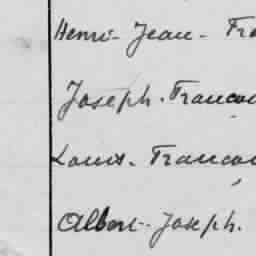 Henri - Jean - Fra
Joseph. Francoi
Louis. Francoi
Albert - Joseph.